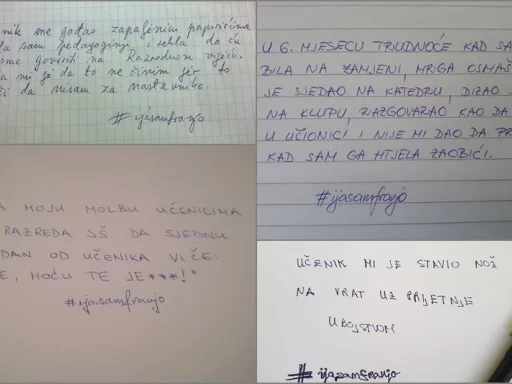 nik me gađao zapaljenim papirićima
sam pedagoginji i rekla da ću
govoriti na Razrednom vijeću.
mi je da to ne činim jer to
da nisam za nastavnika.
#ijasamfranjo
U 6. MJESECU TRUDNOĆE KAD SA
BILA NA ZAMJENI, MRGA OSMAŠ
JE SJEDAO NA KATEDRU, DIZAO
NA KLUPU, RAZGOVARAO KAO DA
U UČIONICI I NIJE MI DAO DA PR
KAD SAM GA HTJELA ZAOBIĆI.
#ijasamfranjo
A MOJU MOLBU UČENICIMA
RAZREDA SŠ DA SJEDNU
DAN OD UČENIKA VIČE:
E, HOĆU TE JE***!"
#ijasamfranjo
UČENIK MI JE STAVIO NOŽ
NA VRAT UZ PRIJETNJE
UBOJSTVOM
#ijasamfranjo